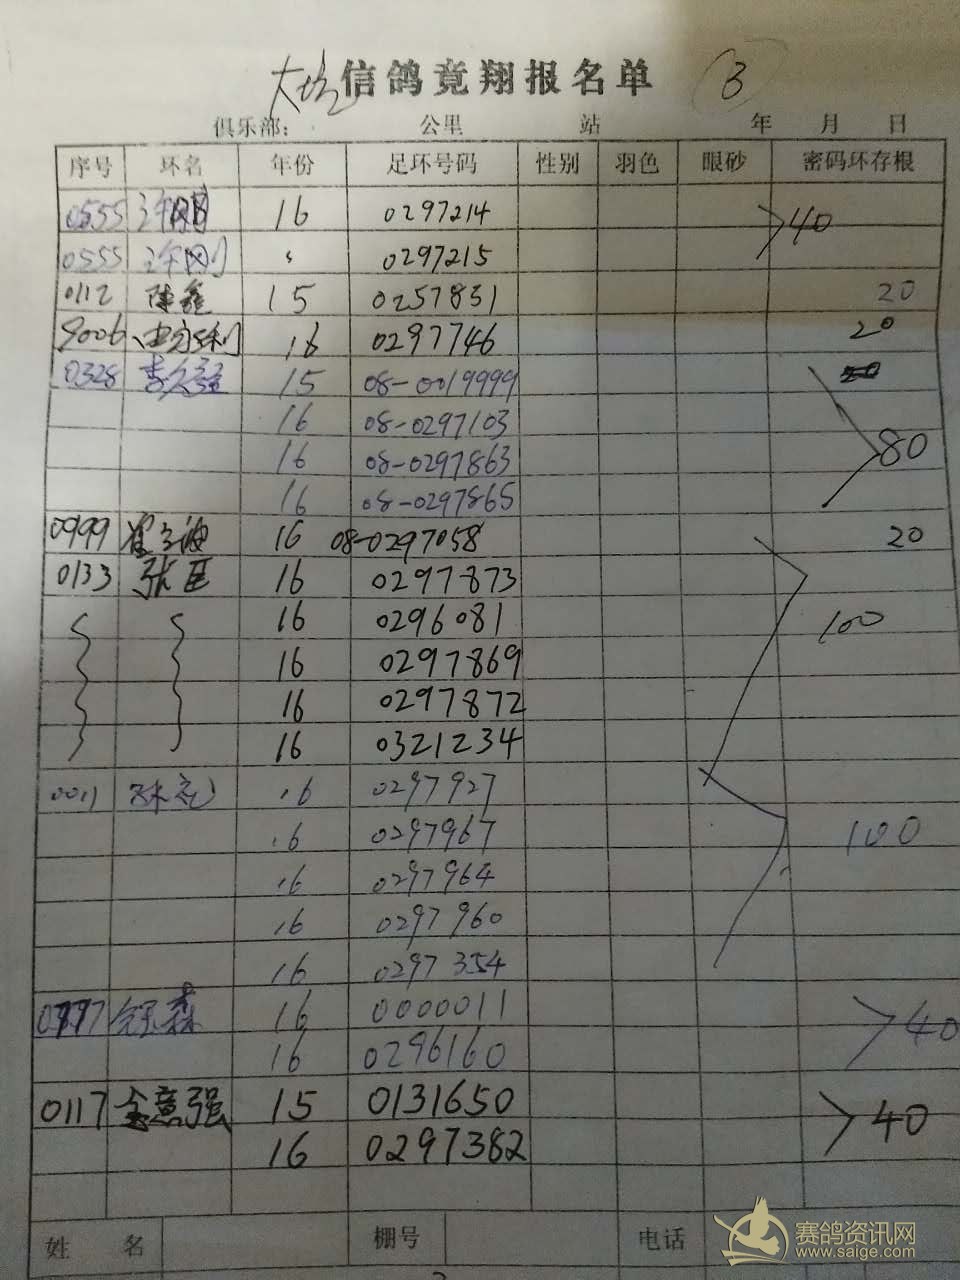 大 信鸽竟翔报名单 3
俱乐部: 公里 站 年 月 日
序号 环名 年份 足环号码 性别 羽色 眼砂 密码环存根
0555 许刚 16 0297214 40
0555 许刚 0297215
0112 陈鑫 15 0257831 20
9006 16 0297746 20
0328 15 08-0019999
16 08-0297103
16 08-0297863 80
16 08-0297865
0999 16 08-0297058 20
0133 张臣 16 0297873
16 0296081 100
16 0297869
16 0297872
16 0321234
0011 16 0297927
16 0297967 100
16 0297964
16 0297960
16 0297354
16 0000011 40
16 0296160
0117 金意强 15 0131650 40
16 0297382
姓名 棚号 电话
赛鸽资讯网
www.saige.com